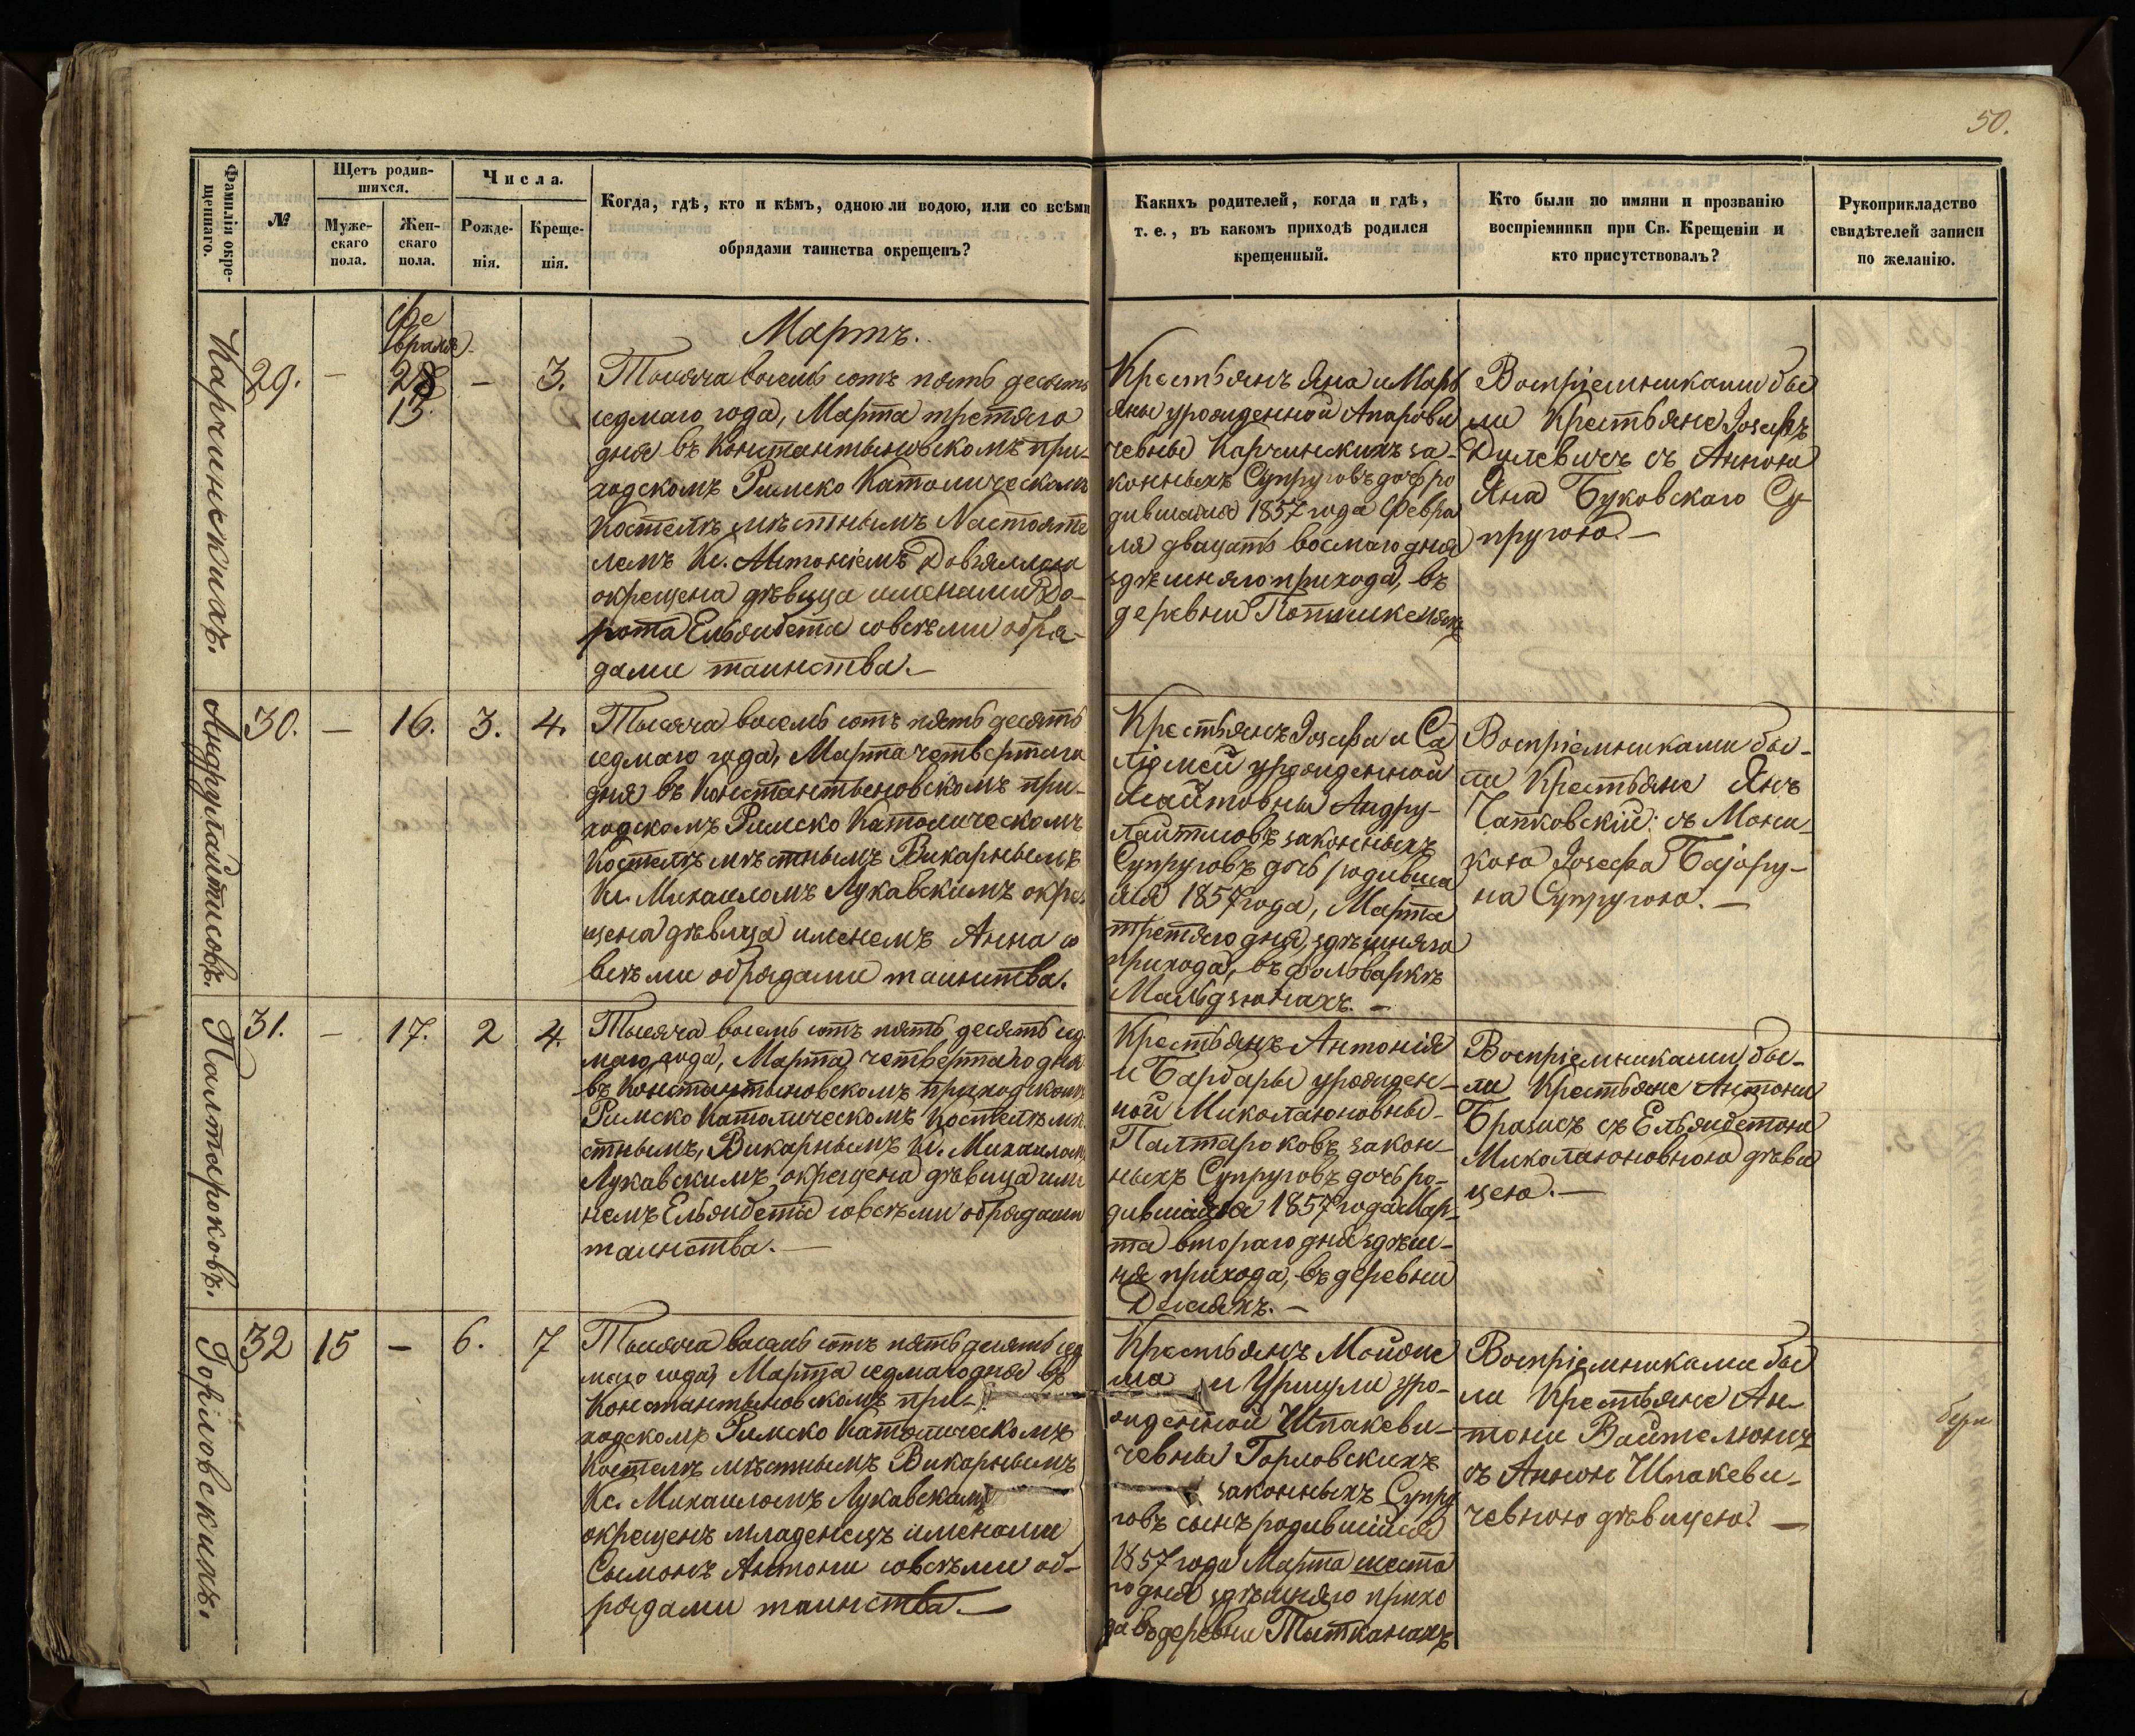 50.
Фамиліи окре-
щеннаго.
№
Щетъ родив-
шихся.
Муже-
скаго
пола.
Жен-
скаго
пола.
Числа.
Рожде-
нія.
Креще-
нія.
Когда, гдѣ, кто и кѣмъ, одною ли водою, или со всѣми
обрядами таинства окрещенъ?
Какихъ родителей, когда и гдѣ,
т. е., въ какомъ приходѣ родился
крещенный.
Кто были по имяни и прозванію
воспріемники при Св. Крещеніи и
кто присутствовалъ?
Рукоприкладство
свидѣтелей записи
по желанію.
Карчинскихъ.
29.
—
Фе
враля
28
15.
—
3.
Мартъ.
Тысяча восемь сотъ пять десять
седмаго года, Марта третяго
дня въ Константыновскомъ при-
ходскомъ Римско Католическомъ
Костелѣ мѣстнымъ Настояте
лемъ Кс. Антоніемъ Довялломъ
окрещена дѣвица именами До-
рота Ельжбета совсѣми обря-
дами таинства.—
Крестьянъ Яна и Марь
яны урожденной
чевны Карчинскихъ за-
конныхъ Супруговъ дочь ро
дившаяся 1857 года Февра
ля двацать восмаго дня
здѣшняго прихода, въ
деревни
Воспріемниками бы
ли Крестьяне Іозефъ
Дулевичъ съ Анною
Яна Буковскаго Су-
пругою.—
Андрулайтисовъ.
30.
—
16.
3.
4.
Тысяча восемь сотъ пять десять
седмаго года, Марта четвертаго
дня въ Константыновскомъ при-
ходскомъ Римско Католическомъ
Костелѣ мѣстнымъ Викарнымъ
Кс. Михаиломъ Лукавскимъ окре
щена дѣвица именемъ Анна со
всѣми обрядами таинства.
Крестьянъ Іозефа и Са
люмеи урожденной
Андру-
лайтисовъ законныхъ
Супруговъ дочь родивша
яся 1857 года, Марта
третяго дня, здѣшняго
прихода, въ фольваркѣ
Мальдзюнахъ.—
Воспріемниками бы-
ли Крестьяне Янъ
Чапковскій съ Мони-
кою Іозефа
на Супругою.—
Палтароковъ.
31.
—
17.
2
4.
Тысяча восемь сотъ пять десять сед
маго года, Марта четвертаго дня
въ Константыновскомъ приходскомъ
Римско Католическомъ Костелѣ мѣ
стнымъ, Викарнымъ Кс. Михаиломъ
Лукавскимъ окрещена дѣвица име
немъ Ельжбета совсѣми обрядами
таинства.—
Крестьянъ Антонія
и Барбары урожден-
ной Миколаюновны
Палтароковъ закон-
ныхъ Супруговъ дочь ро-
дившаяся 1857 года Мар-
та втораго дня здѣш-
ня прихода, въ деревни
Воспріемниками бы-
ли Крестьяне Антони
Бразисъ съ Ельжбетою
Миколаюновною дѣви
цею.—
Горловскихъ.
32
15
—
6.
7
Тысяча восемь сотъ пять десять сед
маго года, Марта седмаго дня въ
Константыновскомъ при-
ходскомъ Римско Католическомъ
Костелѣ мѣстнымъ Викарнымъ
Кс. Михаиломъ Лукавскимъ
окрещенъ младенецъ именами
Сымонъ Антони совсѣми об-
рядами таинства.—
Крестьянъ
и Уршули уро-
жденной Шпакеви-
чевны Горловскихъ
законныхъ Супру
говъ сынъ родившійся
1857 года Марта шеста
го дня здѣшняго прихо
да въ деревни Тытканахъ
Воспріемниками бы
ли Крестьяне Ан-
тони Войтелюнъ
съ Анною Шпакеви-
чевною дѣвицею.—